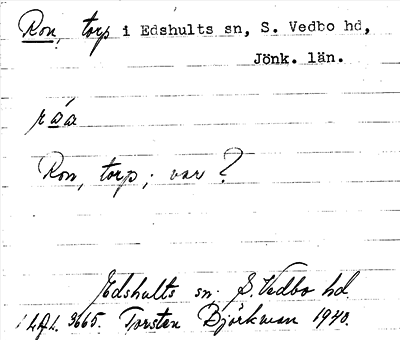 Ron, torp i Edshults sn, S. Vedbo hd,
Jönk. län.
Ron, torp; var?
Edshults sn. S. Vedbo hd.
3665. Torsten Björkman 1940.